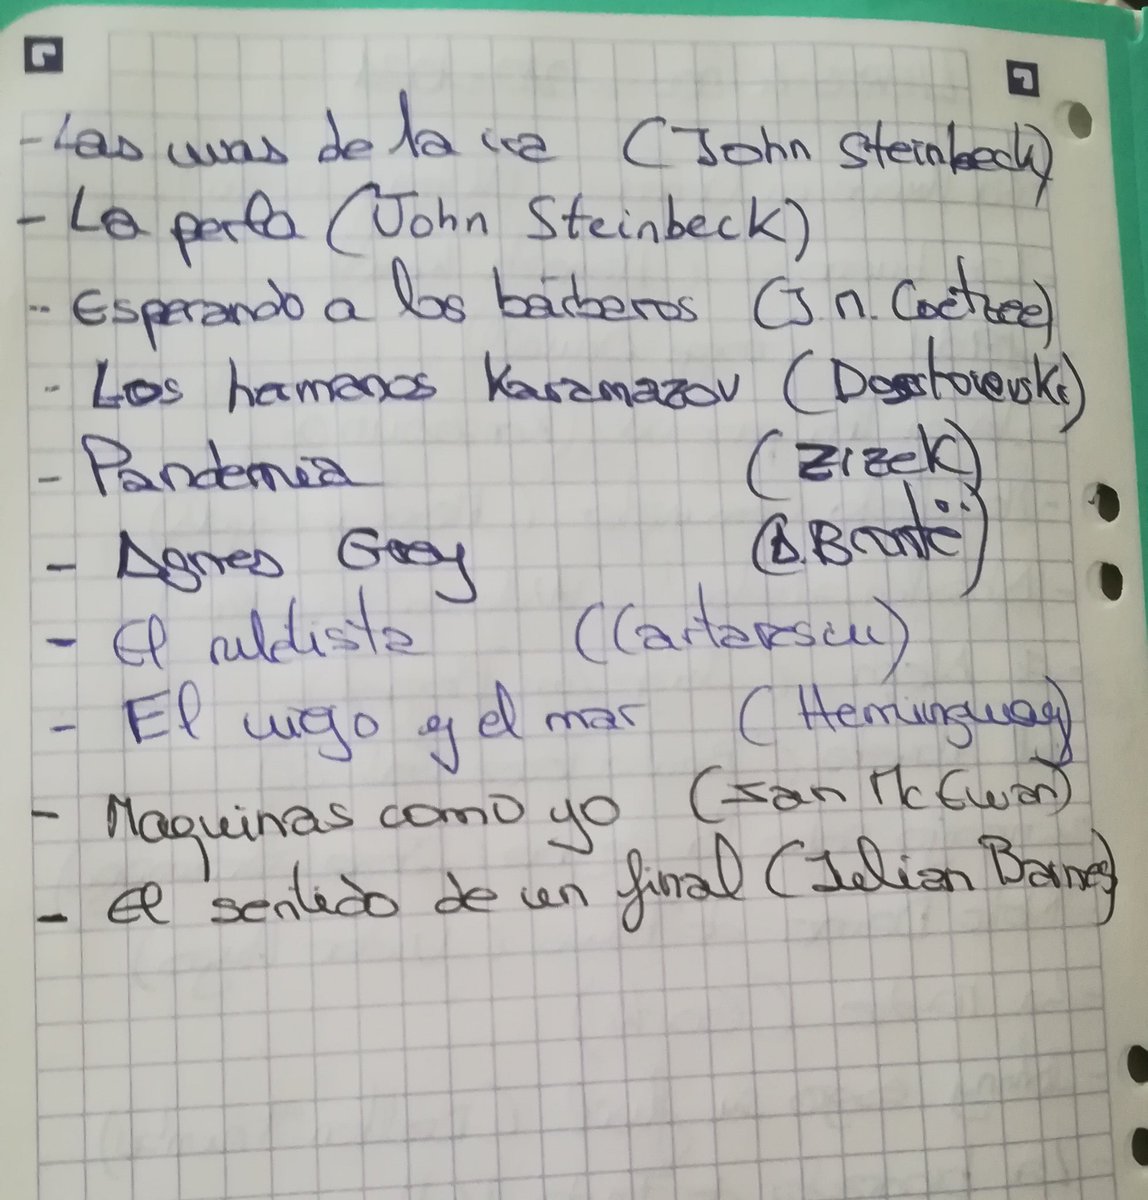 - Las uvas de la ira (John Steinbeck)
- La perla (John Steinbeck)
- Esperando a los bárbaros (J.M. Coetzee)
- Los hermanos Karamazov (Dostoievski)
- Pandemia (Zizek)
- Agnes Grey (A. Brontë)
- El ruldista (Cartarescu)
- El viejo y el mar (Hemingway)
- Maquinas como yo (Ian McEwan)
- El sentido de un final (Julian Barnes)